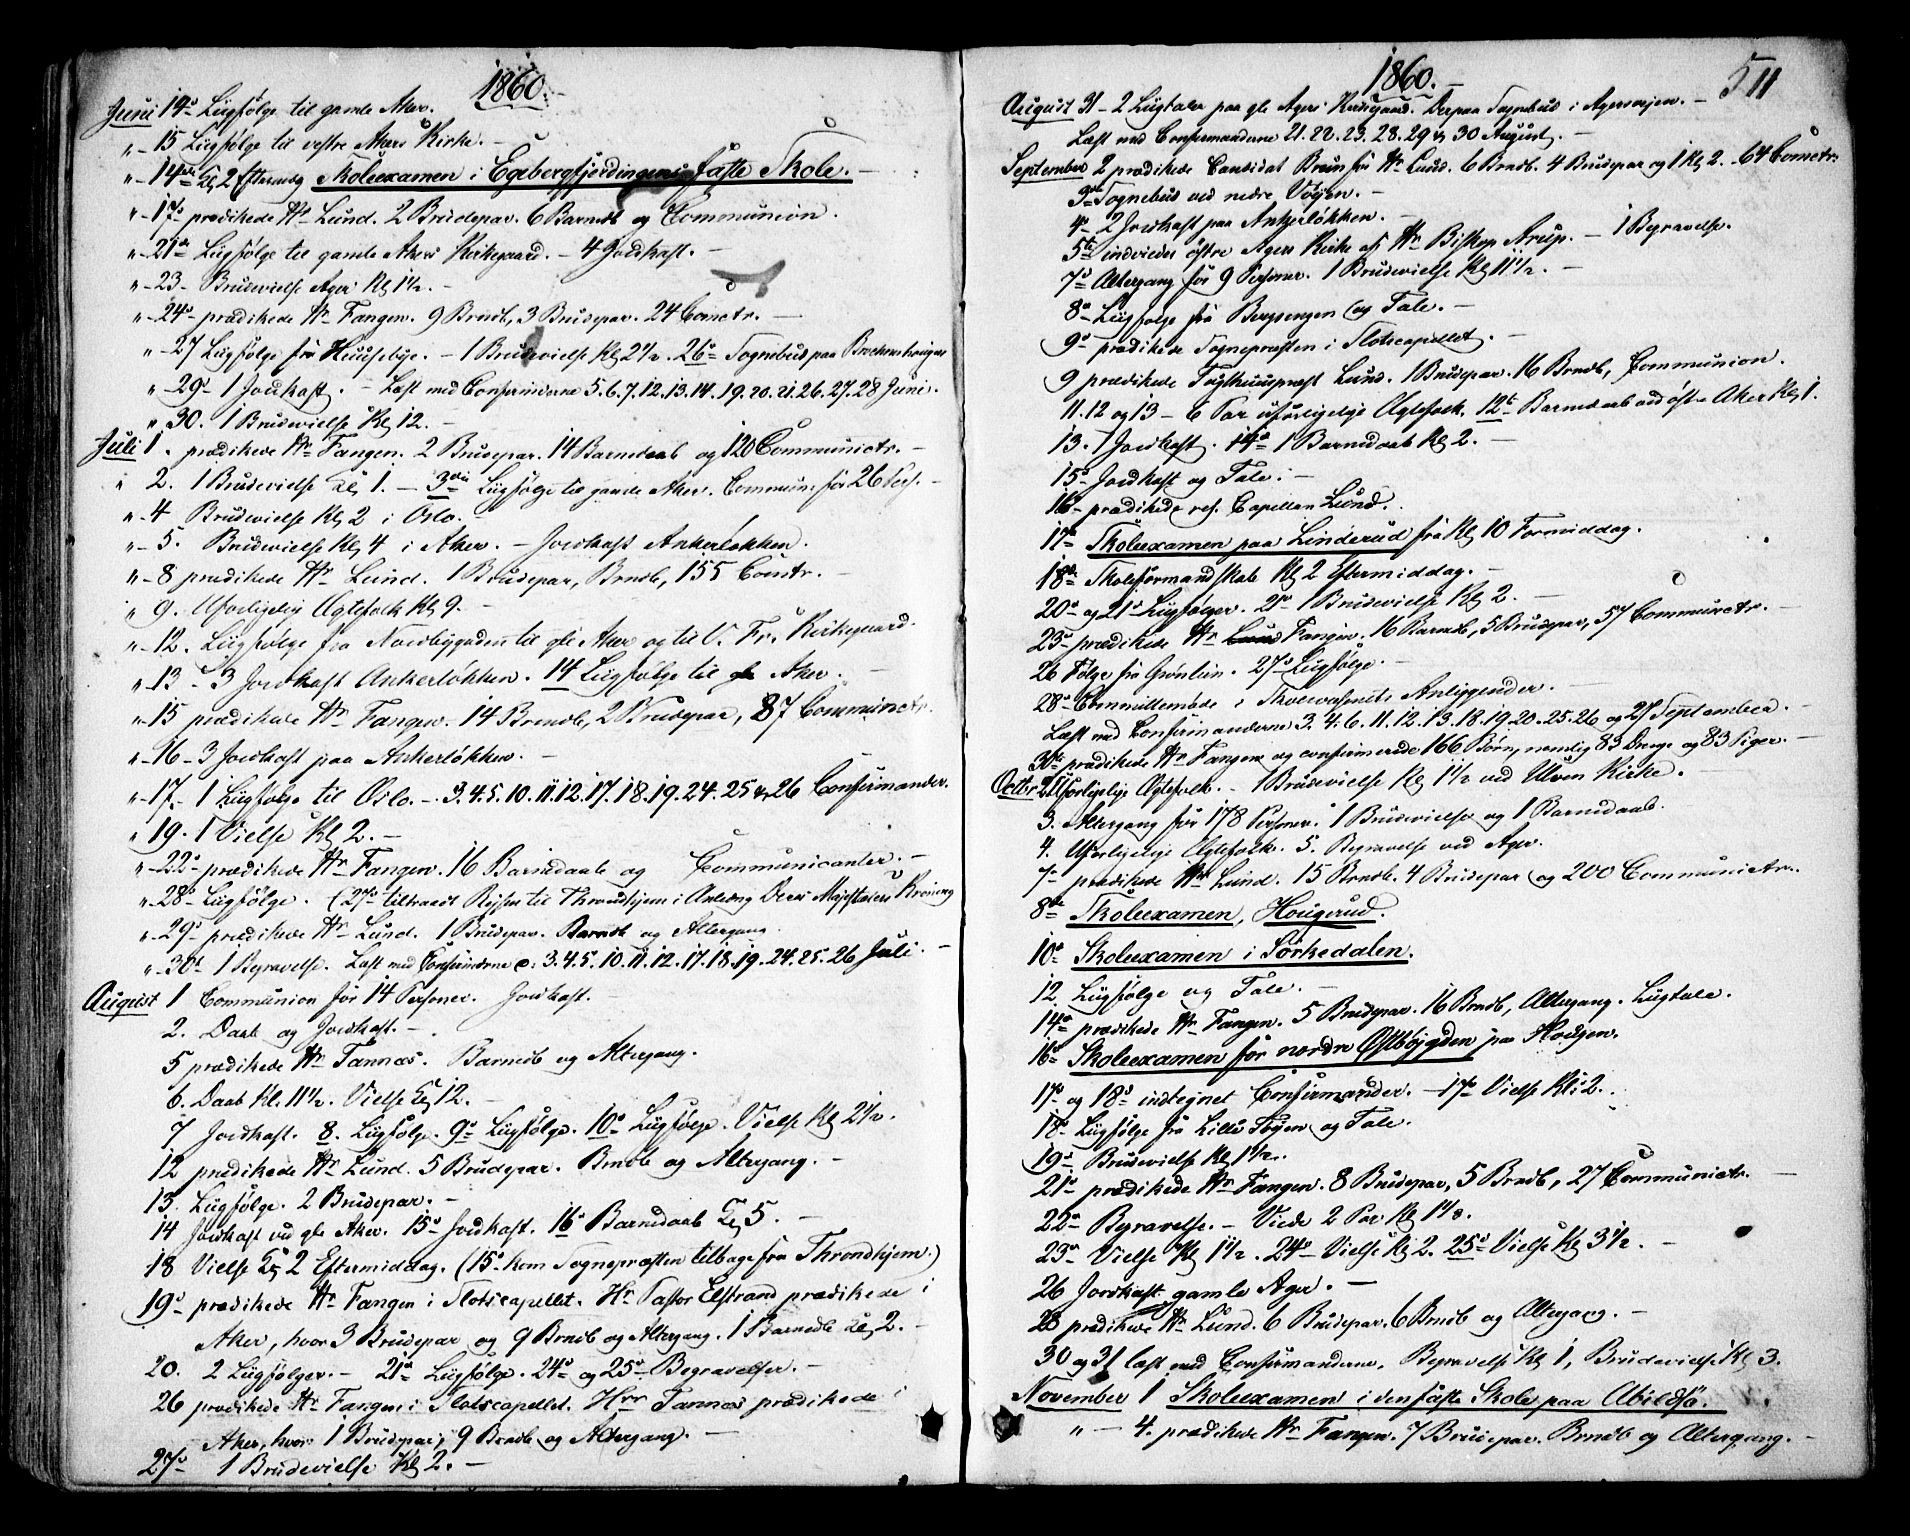 1860.
Juni 14de Liigfølge til gamle Aker.
"-15 Liigfølge til vestre Akers Kirke.-
"-14de Kl 2 Efterm Skoleexamen i Egebergfjerdingens faste Skole.-
"-17de prædikede Hr Lund. 2 Brudepar. 6 Barnedb og Communion.
"-21de Liigfølge til gamle Akers Kirkegaard. - 4 Jordkast.-
"-23- Brudevielse Ager Kl 1½.-
"-24de prædikede Hr Fangen. 9 Brndb, 3 Brudepar. 24 Comctr.-
"-27 Liigfølge fra Huusebye.- 1 Brudevielse Kl 2½. 26de Sognebud paa
"-29de 1 Jordkast.- Læst med Confirmderne 5.6.7.12.13.14.19.20.21.26.27.28 Juni.
"30. 1 Brudevielse Kl 12.-
Juli 1. prædikede Hr Fangen. 2 Brudepar. 14 Barnedaab og 120 Communictr.-
" 2. 1 Brudevielse Kl 1.- 3die Liigfølge til gamle Aker. Commun: for 26 Pers.-
"-4 Brudevielse Kl 2 i Oslo.-
"-5. Brudevielse Kl 4 i Aker.- Jordkast Ankerløkken.
"-8 prædikede Hr Lund. 1 Brudepar, Brndb, 155 Comtr.-
"9. Uforligelige Ægtefolk Kl 9.-
"-12. Liigfølge fra Nordbygaden til gle Aker og til V. Fr. Kirkegaard.
"-13 - 3 Jordkast Ankerløkken. 14 Liigfølge til gle Aker.-
"-15 prædikede Hr Fangen. 14 Brndb, 2 Brudepar, 87 Communictr.
"-16-3 Jordkast paa Ankerløkken.-
"-17.- 1 Liigfølge til Oslo.- 3.4.5.10.11.12.17.18.19.24.25 & 26 Confirmander.
"19. 1 Vielse Kl 2.-
"-22de prædikede Hr Fangen. 16 Barnedaab og Communicanter.-
"-28de Liigfølge. (27de tiltraadt Rejsen til Throndhjem i Anledng Deres Majestæters Kroning
"-29de prædikede Hr Lund. 1 Brudepar. Barndb og Altergang.
"-30te 1 Begravelse. Læst med Confirmderne d: 3.4.5.10.11.12.17.18.19.24.25.26 Juli.-
August 1 Communion for 14 Personer. Jordkast.-
2. Daab og Jordkast.-
5 prædikede Hr Tannæs. Barnedb og Altergang.
6. Daab Kl. 11½. Vielse Kl 12.-
7 Jordkast. 8. Liigfølge. 9de Liigfølge. 10de Liigfølge. Vielse Kl 2½.
12 prædikede Hr Lund. 5 Brudepar. Brndb og Altergang.-
13. Liigfølge. 2 Brudepar.-
14 Jordkast ved gle Aker. 15de Jordkast. 16de Barnedaab Kl 5.-
18 Vielse Kl 2 Eftermiddag. (15de kom Sognepræsten tilbage fra Throndhjem.)
19de prædikede Hr Fangen i Slotscapellet. Hr Pastor Elstrand prædikede i
Aker, hvor 3 Brudepar og 9 Brndb og Altergang. 1 Barnedb Kl 2.-
20. 2 Liigfølger.- 21de Liigfølge. 24de og 25de Begravelser.-
26 prædikede Hr Fangen i Slotscapellet. Hrr Tannæs prædikede i
Aker, hvor 1 Brudepar, 9 Brndb og Altergang.-
27de 1 Brudevielse Kl 2.-
1860.-
511
August 31 - 2 Liigtaler paa gle Agers Kirkegaard. Derpaa Sognebud i Agersvejen.-
Læst med Confirmanderne 21.22.23.28.29 & 30 August.-
September 2 prædikede Candidat Bruun for Hr Lund. 6 Brndb. 4 Brudepar og 1 Kl 2.- 64 Comctr.
3die Sognebud ved nedre Vøyen.-
4de 2 Jordkast paa Ankerløkken.-
5te indviedes østre Agers Kirke af Hr Biskop Arup.- 1 Begravelse.
7de Altergang for 9 Personer. 1 Brudevielse Kl 11½.-
8de Liigfølge fra Bergsengen og Tale.-
9de prædikede Sognepræsten i Slotscapellet.-
9 prædikede Tugthuuspræst Lund. 1 Brudepar. 16 Brndb, Communion.
11.12 og 13 - 6 Par uforligelige Ægtefolk. 12te Barnedaab ved østre Aker Kl 1.
13. 1 Jordkast. 14de 1 Barnedaab Kl 2.-
15de Jordkast og Tale.-
16de prædikede res. Capellan Lund.
17de Skoleexamen paa Linderud fra Kl 10 Formiddag.
18de Skoleformandskab Kl 2 Eftermiddag.-
20de og 21de Liigfølger. 21de 1 Brudevielse Kl 2.-
23de prædikede Hr Lund Fangen. 16 Barnedb, 5 Brudepar, 57 Communictr.-
26 Følge fra Grønlien. 27de Liigfølge.-
28de Committemøde i Skolevæsenets Anliggender.-
Læst med Confirmanderne 3.4.6.11.12.13.18.19.20.25.26 og 27 September.-
30te prædikede Hr Fangen og confirmerede 166 Børn, nemlig 83 Drenge og 83 Piger.-
Octbr 2 Uforligelige Ægtefolk.- 1 Brudevielse Kl 1½ ved Ulven Kirke.-
3. Altergang for 178 Personer. 1 Brudevielse og 1 Barnedaab.
4. Uforligelige Ægtefolk. 5. Begravelse ved Ager.
7de prædikede Hr Lund. 15 Brndb. 4 Brudepar og 200 Communictr.
8de Skoleexamen, Hougerud.
10de Skoleexamen i Sørkedalen.
12 Liigfølge og Tale.-
14de prædikede Hr Fangen. 5 Brudepar. 16 Brndb, Altergang. Liigtale.
16de Skoleexamen for nordre Østbøjgden paa Hougen.
17de og 18de indtegnet Confirmander.- 17de Vielse Kl: 2.
18de Liigfølge fra Lille Tøyen og Tale.
19de Brudevielse Kl 1½.
21de prædikede Hr Fangen. 8 Brudepar, 5 Brndb, 27 Communictr.-
22de Begravelse.- Viede 2 Par Kl 1½.
23de Vielse Kl 1½. 24de Vielse Kl 2. 25de Vielse Kl 3½.-
26 Jordkast gamle Ager.-
28 prædikede Hr Lund. 6 Brudepar. 6 Brndb og Altergang.-
30 og 31 læst med Confirmanderne, Begravelse Kl 1, Brudevielse Kl 3.
November 1 Skoleexamen i den faste Skole paa Abildsø.
"- 4. prædikede Hr Fangen. 7 Brudepar. Brndb og Altergang.-